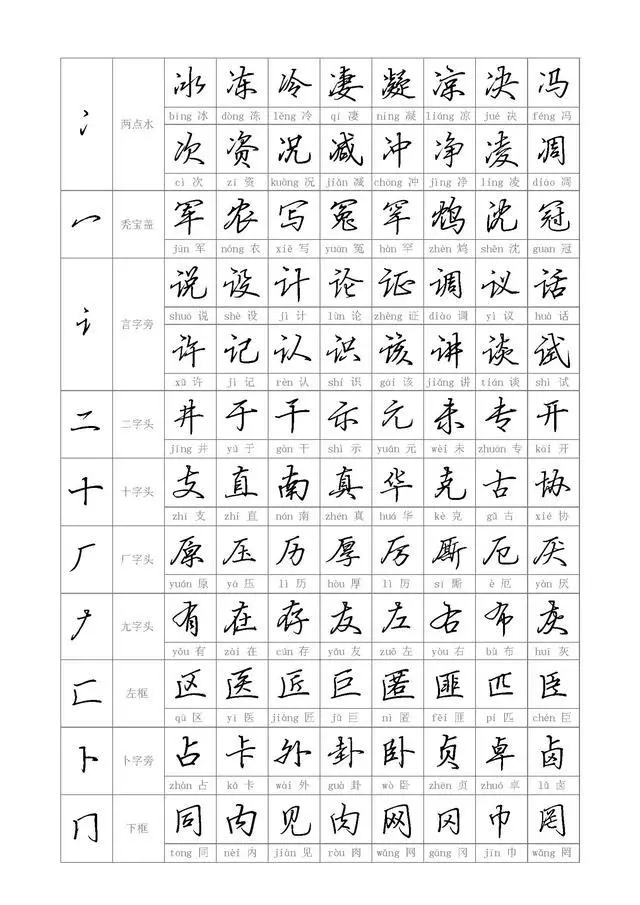 冫 两点水 冰 冻 冷 凄 凝 凉 决 冯
bīng 冰 dòng 冻 lěng 冷 qī 凄 níng 凝 liáng 凉 jué 决 féng 冯
次 资 况 减 冲 净 凌 凋
cì 次 zī 资 kuàng 况 jiǎn 减 chōng 冲 jìng 净 líng 凌 diāo 凋
冖 秃宝盖 军 农 写 冤 罕 鸩 沈 冠
jūn 军 nóng 农 xiě 写 yuān 冤 hǎn 罕 zhèn 鸩 shěn 沈 guan 冠
讠 言字旁 说 设 计 论 证 调 议 话
shuō 说 shè 设 jì 计 lùn 论 zhèng 证 diào 调 yì 议 huà 话
许 记 认 识 该 讲 谈 试
xǔ 许 jì 记 rèn 认 shí 识 gāi 该 jiǎng 讲 tán 谈 shì 试
二 二字头 井 于 干 示 元 未 专 开
jǐng 井 yú 于 gàn 干 shì 示 yuán 元 wèi 未 zhuān 专 kāi 开
十 十字头 支 直 南 真 华 克 古 协
zhī 支 zhí 直 nán 南 zhēn 真 huá 华 kè 克 gǔ 古 xié 协
厂 厂字头 原 压 历 厚 厉 厮 厄 厌
yuán 原 yā 压 lì 历 hòu 厚 lì 厉 sī 厮 è 厄 yàn 厌
𠂇 尢字头 有 在 存 友 左 右 布 灰
yǒu 有 zài 在 cún 存 yǒu 友 zuǒ 左 yòu 右 bù 布 huī 灰
匚 左框 区 医 匠 巨 匿 匪 匹 臣
qū 区 yī 医 jiàng 匠 jù 巨 nì 匿 fěi 匪 pǐ 匹 chén 臣
卜 卜字旁 占 卡 外 卦 卧 贞 卓 卤
zhàn 占 kǎ 卡 wài 外 guà 卦 wò 卧 zhēn 贞 zhuó 卓 lǔ 卤
冂 下框 同 内 见 肉 网 冈 巾 罔
tong 同 nèi 内 jiàn 见 ròu 肉 wǎng 网 gāng 冈 jīn 巾 wǎng 罔